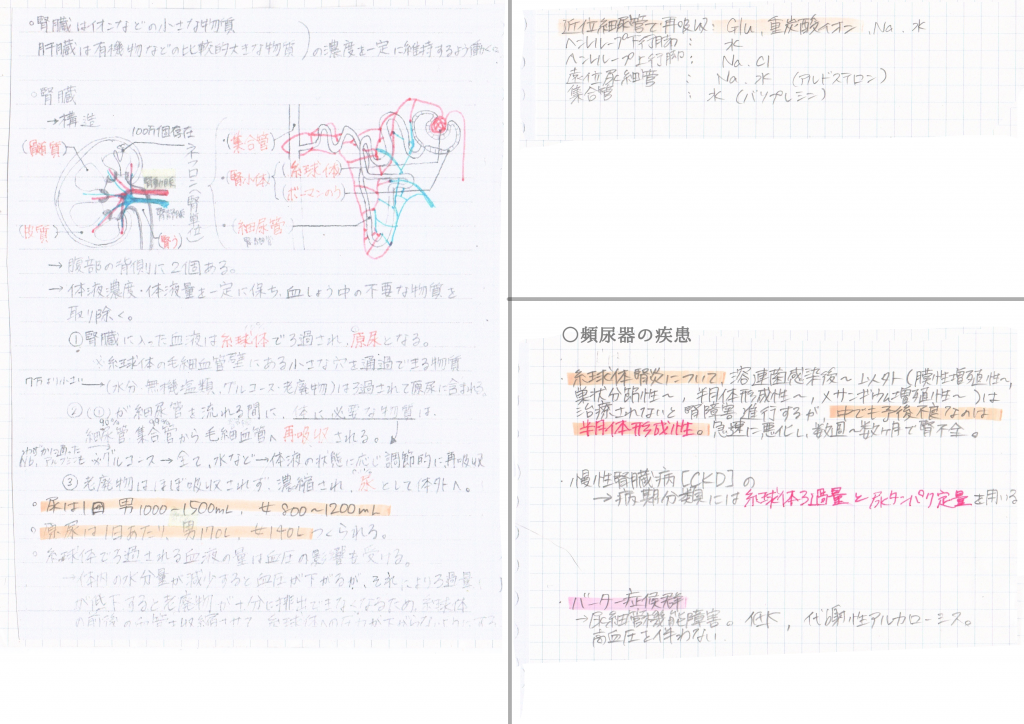 ○腎臓はイオンなどの小さな物質
肝臓は有機物などの比較的大きな物質 の濃度を一定に維持するよう働く。
○腎臓
→構造
100万個存在
(髄質)
(皮質)
(腎う)
ネフロン(腎単位)
・(集合管)
・(腎小体)
(糸球体)
(ボーマンのう)
・(細尿管)
→腹部の背側に2個ある。
→体液濃度・体液量を一定に保ち、血しょう中の不要な物質を
取り除く。
①腎臓に入った血液は糸球体でろ過され、原尿となる。
糸球体の毛細血管壁にある小さな穴を通過できる物質
(水分、無機塩類、グルコース・老廃物)はろ過されて原尿に含まれる。
②(①)が細尿管を流れる間に、体に必要な物質は、
細尿管 集合管から毛細血管へ再吸収される。
グルコース→全て、水など→体液の状態に応じ調節的に再吸収
③老廃物はほぼ吸収されず、濃縮され、尿として体外へ。
○尿は1日 男1000~1500mL, 女800~1200mL
○原尿は1日あたり、男170L、女140Lつくられる。
○糸球体でろ過される血液の量は血圧の影響を受ける。
→体内の水分量が減少すると血圧が下がるが、それによりろ過量
が低下すると老廃物が十分に排出できなくなるため、糸球体
近位細尿管で再吸収: Glu, 重炭酸イオン, Na. 水
ヘンレループ下行脚: 水
ヘンレループ上行脚: Na. Cl
遠位尿細管: Na. 水 (アルドステロン)
集合管: 水 (バソプレシン)
○頻尿器の疾患
・糸球体腎炎について, 溶連菌感染後~以外(膜性増殖性~,
巣状分節性~, 半月体形成性~, メサンギウム増殖性~)は
治療されないと腎障害進行するが, 中でも予後不良なのは
半月体形成性。急速に悪化し、数週~数ヶ月で腎不全。
・慢性腎臓病[CKD]の
→病期分類には糸球体ろ過量と尿タンパク定量を用いる
・バーター症候群
→尿細管機能障害。低K, 代謝性アルカローシス。
高血圧を伴わない